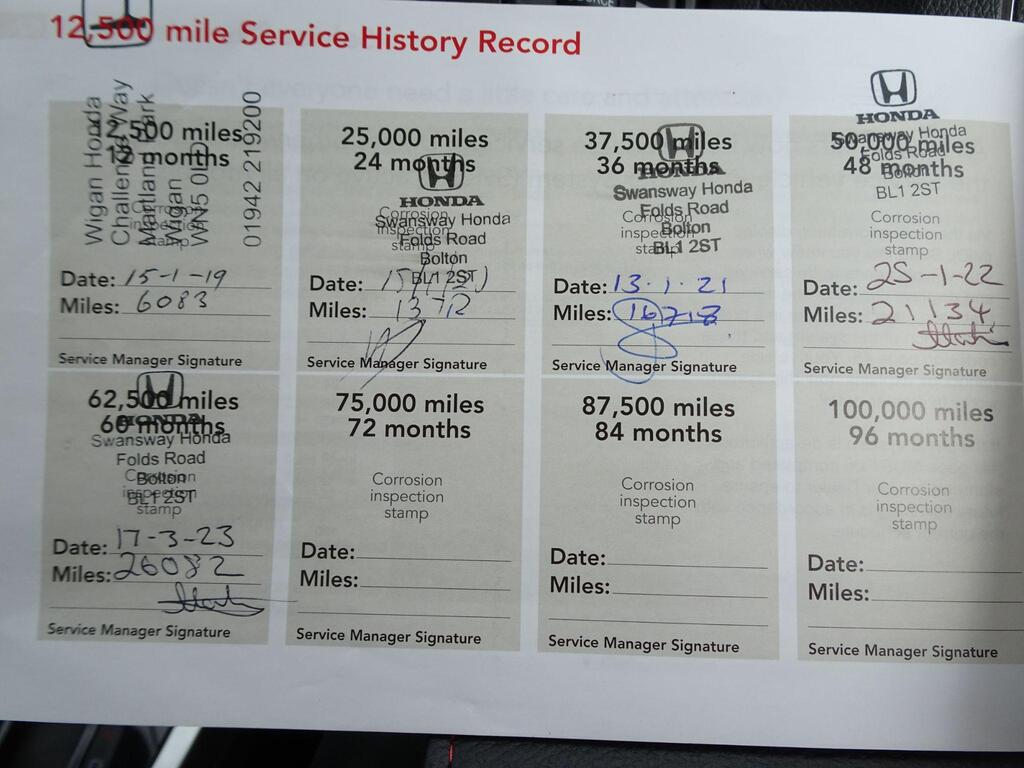 12,500 mile Service History Record
12,500 miles
12 months
Wigan Honda
Challenge Way
Martland Park
Wigan
WN5 0LD
01942 219200
Corrosion
inspection
stamp
Date: 15-1-19
Miles: 6083
Service Manager Signature
25,000 miles
24 months
HONDA
Swansway Honda
Folds Road
Bolton
BL1 2ST
Corrosion
inspection
stamp
Date:
Miles: 13712
Service Manager Signature
37,500 miles
36 months
HONDA
Swansway Honda
Folds Road
Bolton
BL1 2ST
Corrosion
inspection
stamp
Date: 13.1.21
Miles: 16718
Service Manager Signature
HONDA
Swansway Honda
Folds Road
Bolton
BL1 2ST
50,000 miles
48 months
Corrosion
inspection
stamp
Date: 25-1-22
Miles: 21134
Service Manager Signature
62,500 miles
60 months
HONDA
Swansway Honda
Folds Road
Bolton
BL1 2ST
Corrosion
inspection
stamp
Date: 17-3-23
Miles: 26082
Service Manager Signature
75,000 miles
72 months
Corrosion
inspection
stamp
Date:
Miles:
Service Manager Signature
87,500 miles
84 months
Corrosion
inspection
stamp
Date:
Miles:
Service Manager Signature
100,000 miles
96 months
Corrosion
inspection
stamp
Date:
Miles:
Service Manager Signature